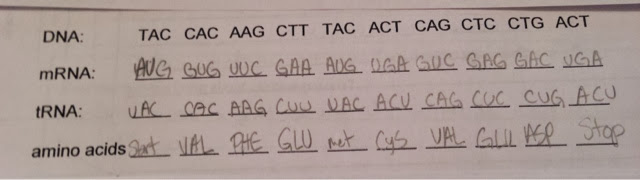 DNA: TAC CAC AAG CTT TAC ACT CAG CTC CTG ACT
mRNA: AUG GUG UUC GAA AUG UGA GUC GAG GAC UGA
tRNA: UAC CAC AAG CUU UAC ACU CAG CUC CUG ACU
amino acids Start VAL PHE GLU met Cys VAL GLU ASP Stop